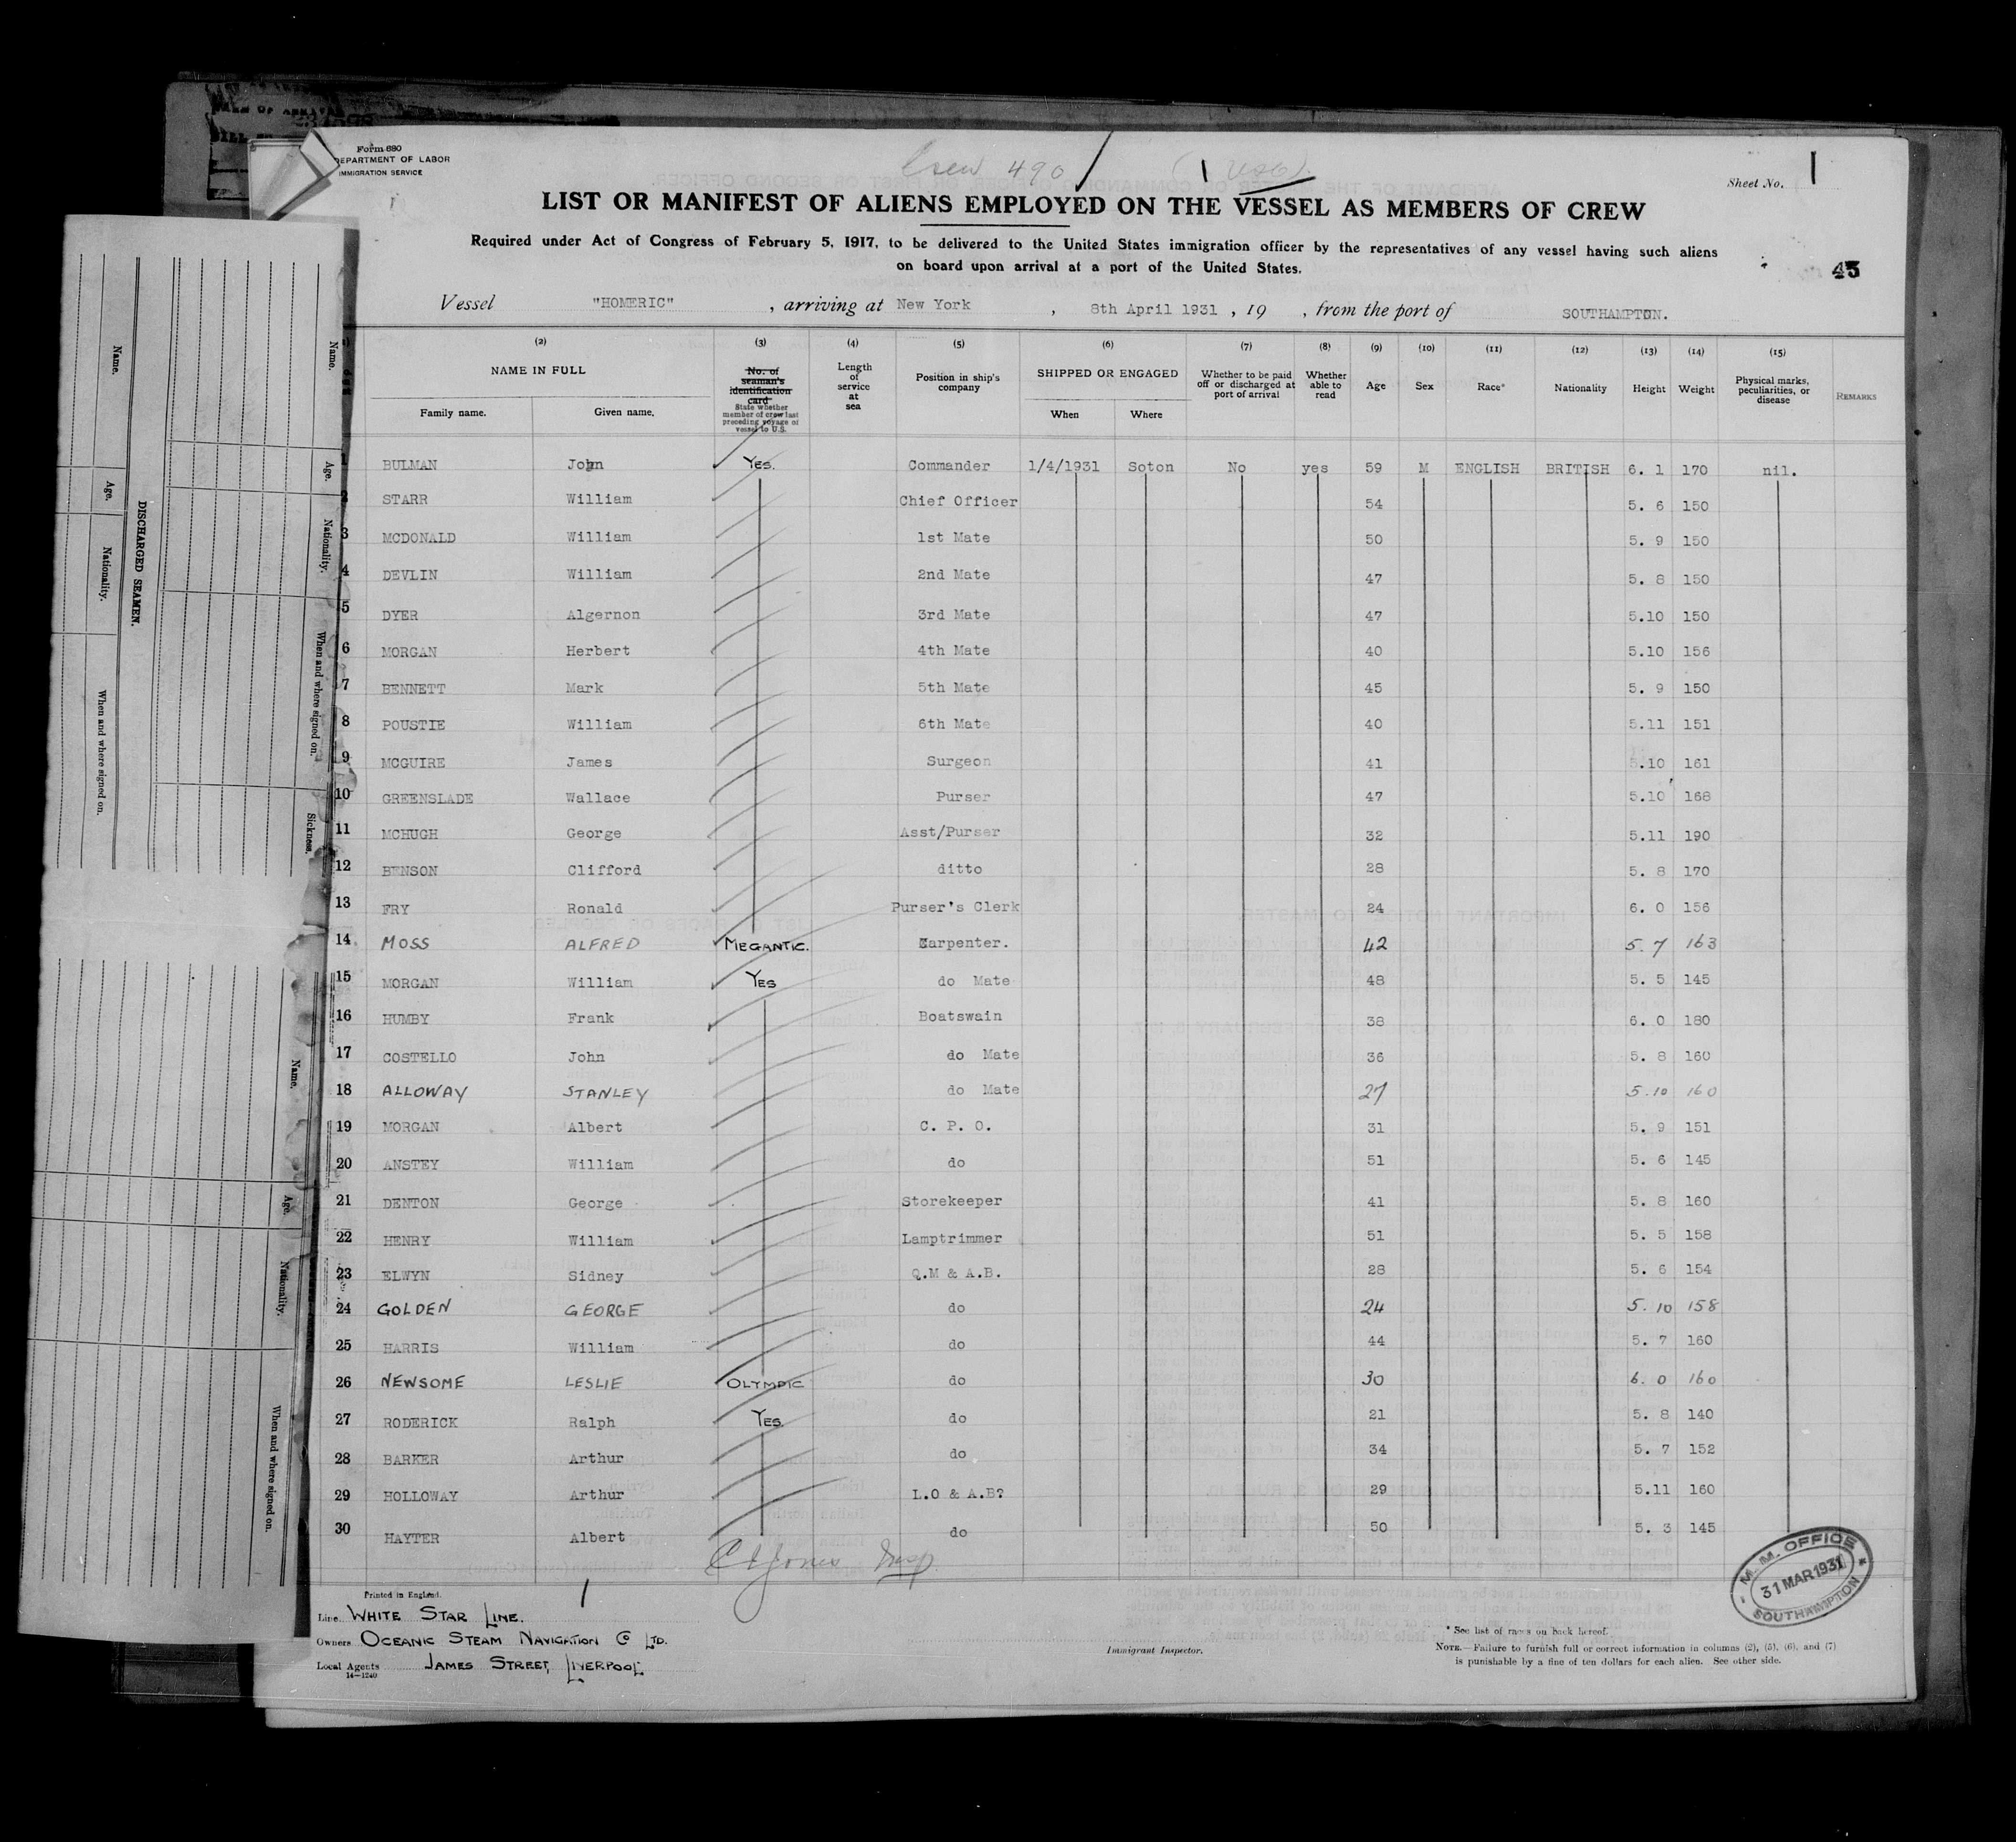 Form 680
DEPARTMENT OF LABOR
IMMIGRATION SERVICE
Crew 490
Sheet No. 1
LIST OR MANIFEST OF ALIENS EMPLOYED ON THE VESSEL AS MEMBERS OF CREW
Required under Act of Congress of February 5, 1917, to be delivered to the United States immigration officer by the representatives of any vessel having such aliens
on board upon arrival at a port of the United States.
45
Vessel "HOMERIC" , arriving at New York , 8th April 1931 , 19 , from the port of SOUTHAMPTON.
(2) (3) (4) (5) (6) (7) (8) (9) (10) (11) (12) (13) (14) (15)
NAME IN FULL
Family name. Given name.
No. of seaman's identification card
State whether member of crew last preceding voyage of vessel to U.S.
Length of service at sea
Position in ship's company
SHIPPED OR ENGAGED
When Where
Whether to be paid off or discharged at port of arrival
Whether able to read
Age Sex Race* Nationality Height Weight
Physical marks, peculiarities, or disease
REMARKS
1 BULMAN John Yes. Commander 1/4/1931 Soton No yes 59 M ENGLISH BRITISH 6. 1 170 nil.
2 STARR William Chief Officer 54 5. 6 150
3 MCDONALD William 1st Mate 50 5. 9 150
4 DEVLIN William 2nd Mate 47 5. 8 150
5 DYER Algernon 3rd Mate 47 5.10 150
6 MORGAN Herbert 4th Mate 40 5.10 156
7 BENNETT Mark 5th Mate 45 5. 9 150
8 POUSTIE William 6th Mate 40 5.11 151
9 MCGUIRE James Surgeon 41 5.10 161
10 GREENSLADE Wallace Purser 47 5.10 168
11 MCHUGH George Asst/Purser 32 5.11 190
12 BENSON Clifford ditto 28 5. 8 170
13 FRY Ronald Purser's Clerk 24 6. 0 156
14 MOSS ALFRED MEGANTIC. Carpenter. 42 5. 7 163
15 MORGAN William YES do Mate 48 5. 5 145
16 HUMBY Frank Boatswain 38 6. 0 180
17 COSTELLO John do Mate 36 5. 8 160
18 ALLOWAY STANLEY do Mate 27 5.10 160
19 MORGAN Albert C. P. O. 31 5. 9 151
20 ANSTEY William do 51 5. 6 145
21 DENTON George Storekeeper 41 5. 8 160
22 HENRY William Lamptrimmer 51 5. 5 158
23 ELWYN Sidney Q.M & A.B. 28 5. 6 154
24 GOLDEN GEORGE do 24 5. 10 158
25 HARRIS William do 44 5. 7 160
26 NEWSOME LESLIE OLYMPIC do 30 6. 0 160
27 RODERICK Ralph YES. do 21 5. 8 140
28 BARKER Arthur do 34 5. 7 152
29 HOLLOWAY Arthur L.O & A.B? 29 5.11 160
30 HAYTER Albert do 50 5. 3 145
Printed in England.
Line WHITE STAR LINE.
Owners OCEANIC STEAM NAVIGATION Co LTD.
Local Agents JAMES STREET, LIVERPOOL
14—1240
Immigrant Inspector.
M. M. OFFICE
31 MAR 1931
SOUTHAMPTON
* See list of races on back hereof.
NOTE.—Failure to furnish full or correct information in columns (2), (5), (6), and (7)
is punishable by a fine of ten dollars for each alien. See other side.
DISCHARGED SEAMEN.
Name. Age. Nationality. When and where signed on.
Name. Age. Nationality. When and where signed on. Sickness.
Name. Age. Nationality. When and where signed on.